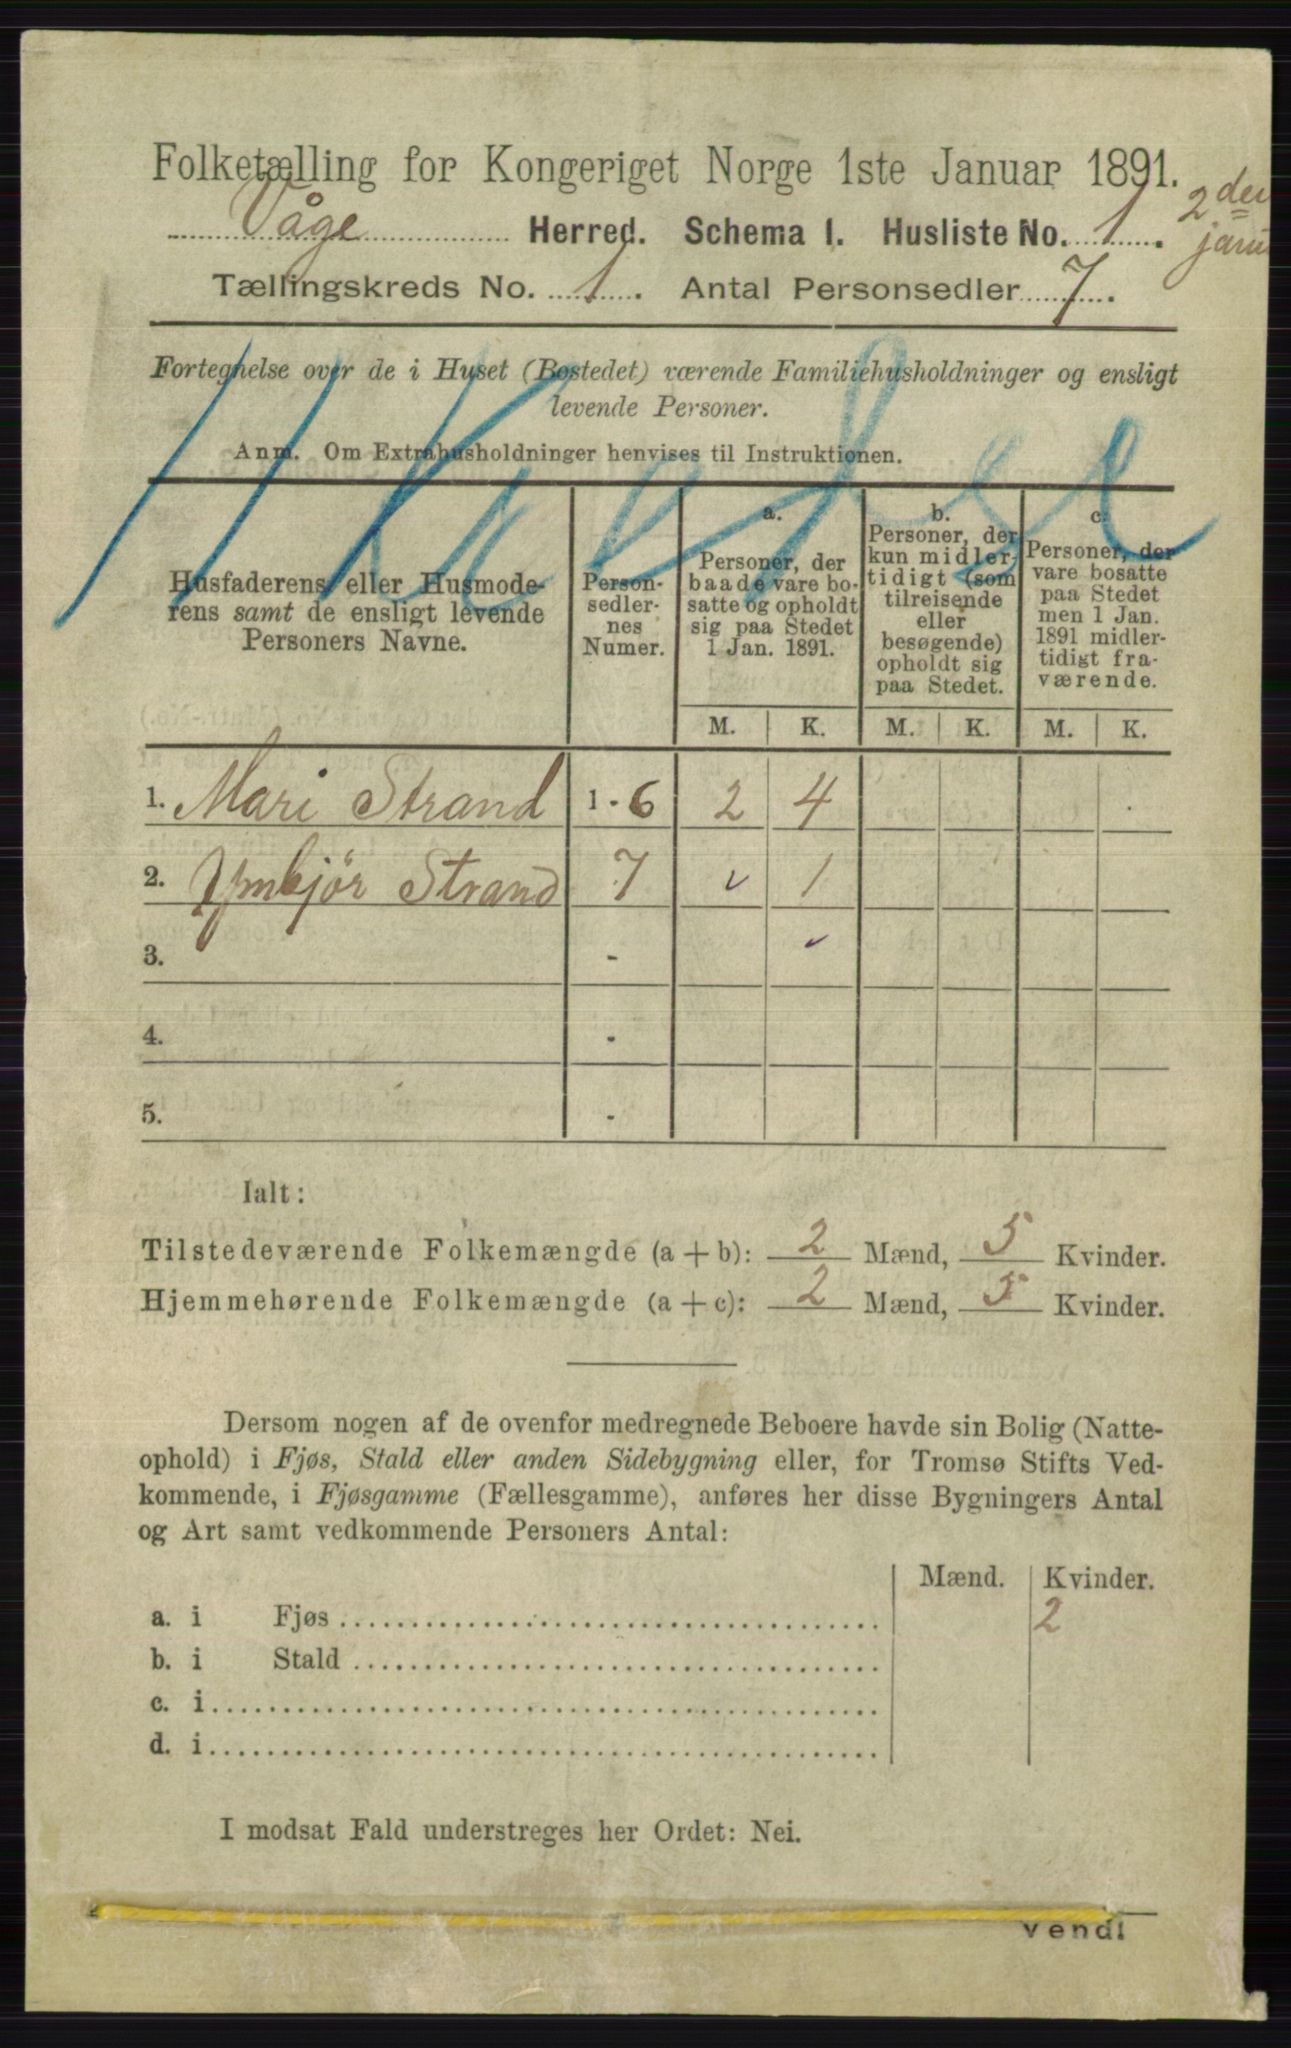 Folketælling for Kongeriget Norge 1ste Januar 1891.
Våge Herred. Schema I. Husliste No. 1.
2den
janu
Tællingskreds No. 1. Antal Personsedler 7.
Fortegnelse over de i Huset (Bostedet) værende Familiehusholdninger og ensligt
levende Personer.
Anm. Om Extrahusholdninger henvises til Instruktionen.
Husfaderens eller Husmode-
rens samt de ensligt levende
Personers Navne.
Person-
sedler-
nes
Numer.
a.
Personer, der
baade vare bo-
satte og opholdt
sig paa Stedet
1 Jan. 1891.
b.
Personer, der
kun midler-
tidigt (som
tilreisende
eller
besøgende)
opholdt sig
paa Stedet.
c.
Personer, der
vare bosatte
paa Stedet
men 1 Jan.
1891 midler-
tidigt fra-
værende.
M. K. M. K. M. K.
1. Mari Strand 1-6 2 4
2. Strand 7 1
3. -
4. -
5. -
Ialt:
Tilstedeværende Folkemængde (a + b): 2 Mænd, 5 Kvinder.
Hjemmehørende Folkemængde (a + c): 2 Mænd, 5 Kvinder.
Dersom nogen af de ovenfor medregnede Beboere havde sin Bolig (Natte-
ophold) i Fjøs, Stald eller anden Sidebygning eller, for Tromsø Stifts Ved-
kommende, i Fjøsgamme (Fællesgamme), anføres her disse Bygningers Antal
og Art samt vedkommende Personers Antal:
Mænd. Kvinder.
a. i Fjøs 2
b. i Stald
c. i
d. i
I modsat Fald understreges her Ordet: Nei.
vend!